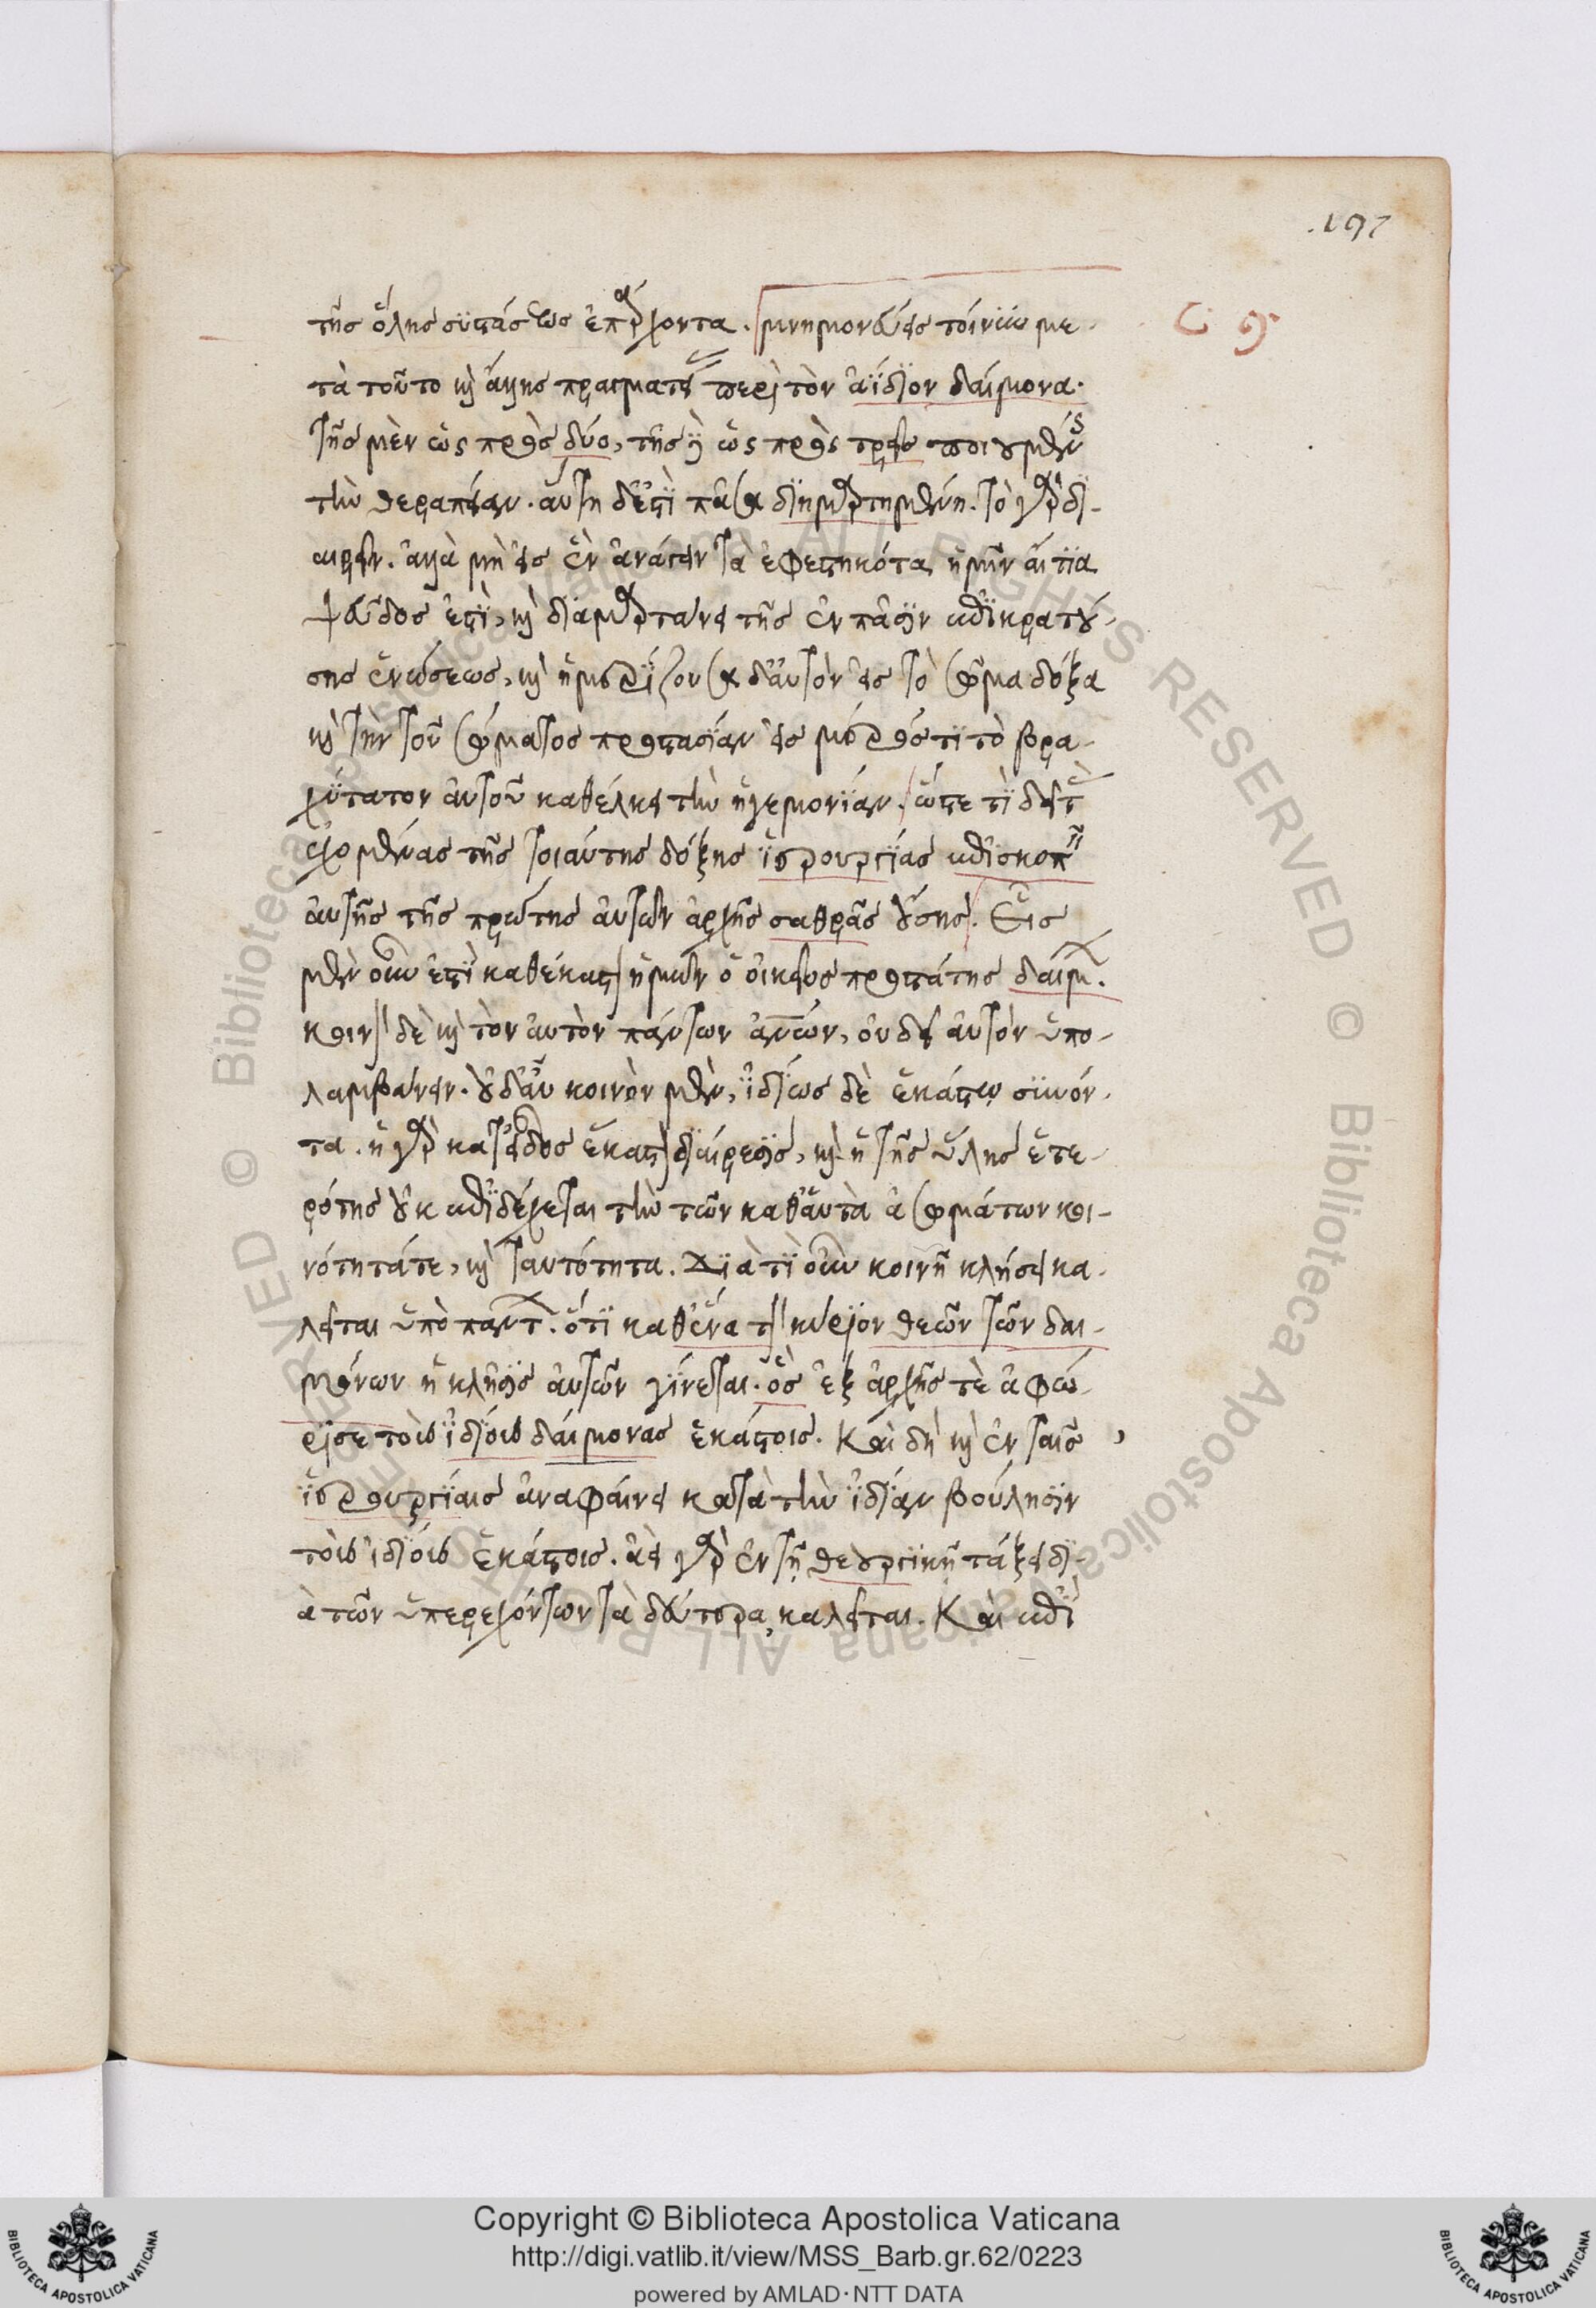 .197
τῆς ὅλης συστάσεως ἐπάρχοντα. μνημονεύεις τοίνυν με-
C. 9.
τὰ τοῦτο καὶ ἄλλης πραγματείας περὶ τὸν ἀΐδιον δαίμονα.
τῆς μὲν ὡς πρὸς δύο, τῆς δὲ ὡς πρὸς τρεῖς ποιουμένης
τὴν θεραπείαν. αὕτη δέ ἐστι πᾶσα διημαρτημένη. τὸ γὰρ δι-
αιρεῖν. ἀλλὰ μὴ εἰς ἓν ἀνάγειν τὰ ἐφεστηκότα ἡμῖν αἴτια
ψεῦδος ἐστί, καὶ διαμαρτάνει τῆς ἐν πᾶσιν ἐπικρατού-
σης ἑνώσεως, καὶ ἡ μερίζουσα δ' αὐτὸν εἰς τὸ σῶμα δόξα
καὶ τὴν τοῦ σώματος προστασίαν εἰς μέρος τι τὸ βρα-
χύτατον αὐτοῦ καθέλκει τὴν ἡγεμονίαν. ὥστε τί δεῖ τὰς
ἐχομένας τῆς τοιαύτης δόξης ἱερουργίας ἐπισκοπεῖν
αὐτῆς τῆς πρώτης αὐτῶν ἀρχῆς σαθρᾶς οὔσης. Εἷς
μὲν οὖν ἐστι καθ' ἕκαστον ἡμῶν ὁ οἰκεῖος προστάτης δαίμων.
κοινὸν δὲ καὶ τὸν αὐτὸν πάντων ἀνθρώπων, οὐ δεῖ αὐτὸν ὑπο-
λαμβάνειν. οὐδ' αὖ κοινὸν μὲν, ἰδίως δὲ ἑκάστῳ συνόν-
τα. ἡ γὰρ κατ' εἶδος ἕκαστον διαίρεσις, καὶ ἡ τῆς ὕλης ἑτε-
ρότης οὐκ ἐπιδέχεται τὴν τῶν καθ' αὑτὰ ἀσωμάτων κοι-
νότητά τε, καὶ ταυτότητα. Διὰ τί οὖν κοινῇ κλήσει κα-
λεῖται ὑπὸ πάντων. ὅτι καθ' ἕνα τὸν κύριον θεῶν τῶν δαι-
μόνων ἡ κλῆσις αὐτῶν γίνεται. ὃς ἐξ ἀρχῆς τε ἀφώ-
ρισε τοὺς ἰδίους δαίμονας ἑκάστοις. Καὶ δὴ καὶ ἐν ταῖς
ἱερουργίαις ἀναφαίνει κατὰ τὴν ἰδίαν βούλησιν
τοὺς ἰδίους ἑκάστοις. ἀεὶ γὰρ ἐν τῇ θεουργικῇ τάξει δι-
ὰ τῶν ὑπερεχόντων τὰ δεύτερα καλεῖται. Καὶ ἐπὶ
Copyright © Biblioteca Apostolica Vaticana
http://digi.vatlib.it/view/MSS_Barb.gr.62/0223
powered by AMLAD·NTT DATA